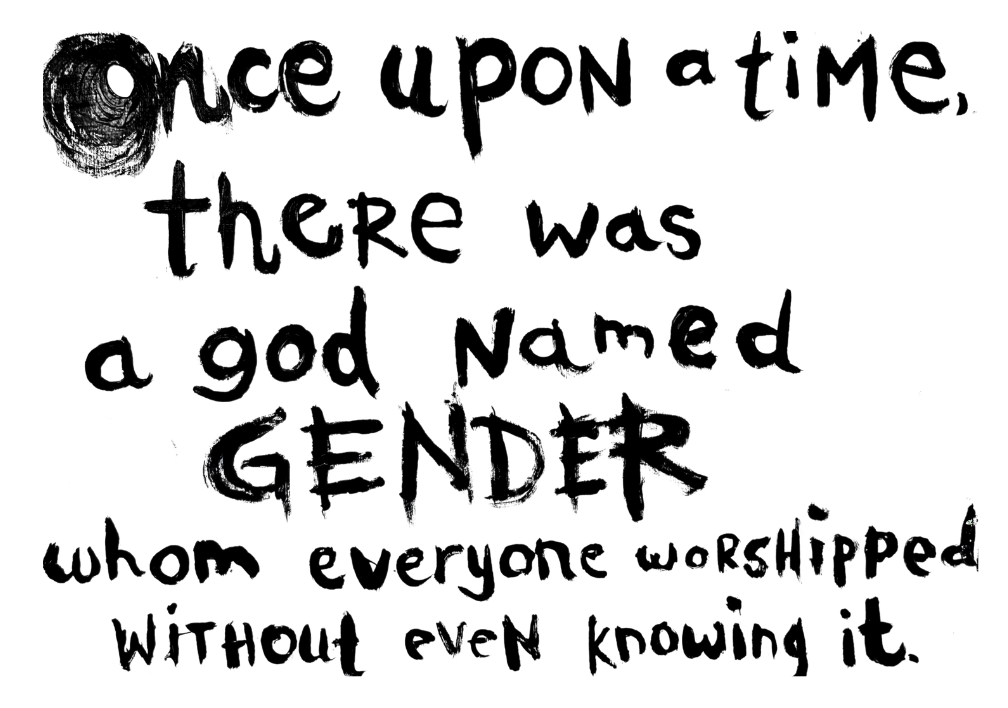 once upon a time,
there was
a god Named
GENDER
whom everyone worshipped
without even knowing it.